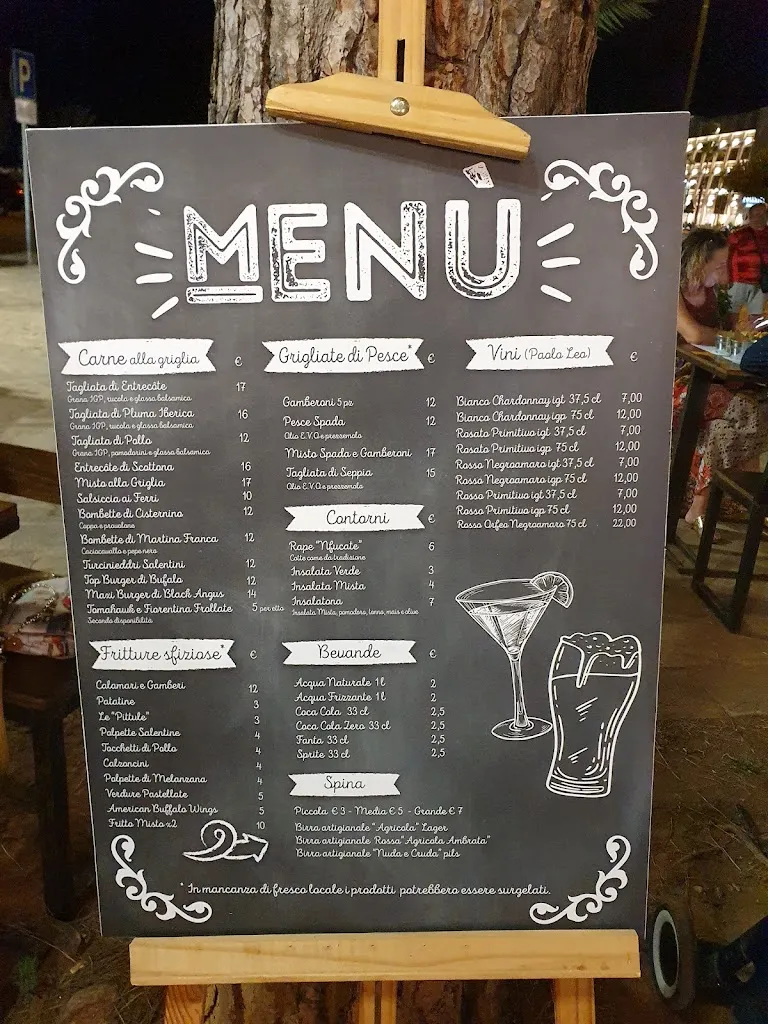 P
MENÙ
Carne alla griglia €
Tagliata di Entrecôte 17
Grana IGP, rucola e glassa balsamica
Tagliata di Pluma Iberica 16
Grana IGP, rucola e glassa balsamica
Tagliata di Pollo 12
Grana IGP, pomodorini e glassa balsamica
Entrecôte di Scottona 16
Misto alla Griglia 17
Salsiccia ai Ferri 10
Bombette di Cisternino 12
Coppa e provolone
Bombette di Martina Franca 12
Caciocavallo e pepe nero
Turcinieddri Salentini 12
Top Burger di Bufalo 12
Maxi Burger di Black Angus 14
Tomahauk e Fiorentina Frollate 5 per etto
Secondo disponibilità
Fritture sfiziose* €
Calamari e Gamberi 12
Patatine 3
Le "Pittule" 3
Polpette Salentine 4
Tocchetti di Pollo 4
Calzoncini 4
Polpette di Melanzana 4
Verdure Pastellate 5
American Buffalo Wings 5
Fritto Misto x2 10
Grigliate di Pesce* €
Gamberoni 5 pz 12
Pesce Spada 12
Olio E.V.O e prezzemolo
Misto Spada e Gamberoni 17
Tagliata di Seppia 15
Olio E.V.O e prezzemolo
Contorni €
Rape "Nfucate" 6
Cotte come da tradizione
Insalata Verde 3
Insalata Mista 4
Insalatona 7
Insalata Mista, pomodoro, tonno, mais e olive
Bevande €
Acqua Naturale 1 l 2
Acqua Frizzante 1 l 2
Coca Cola 33 cl 2,5
Coca Cola Zero 33 cl 2,5
Fanta 33 cl 2,5
Sprite 33 cl 2,5
Spina
Piccola € 3 - Media € 5 - Grande € 7
Birra artigianale "Agricola" Lager
Birra artigianale Rossa "Agricola Ambrata"
Birra artigianale "Nuda e Cruda" pils
Vini (Paolo Leo) €
Bianco Chardonnay igt 37,5 cl 7,00
Bianco Chardonnay igp 75 cl 12,00
Rosato Primitivo igt 37,5 cl 7,00
Rosato Primitivo igp 75 cl 12,00
Rosso Negroamaro igt 37,5 cl 7,00
Rosso Negroamaro igp 75 cl 12,00
Rosso Primitivo igt 37,5 cl 7,00
Rosso Primitivo igp 75 cl 12,00
Rosso Orfeo Negroamaro 75 cl 22,00
* In mancanza di fresco locale i prodotti potrebbero essere surgelati.